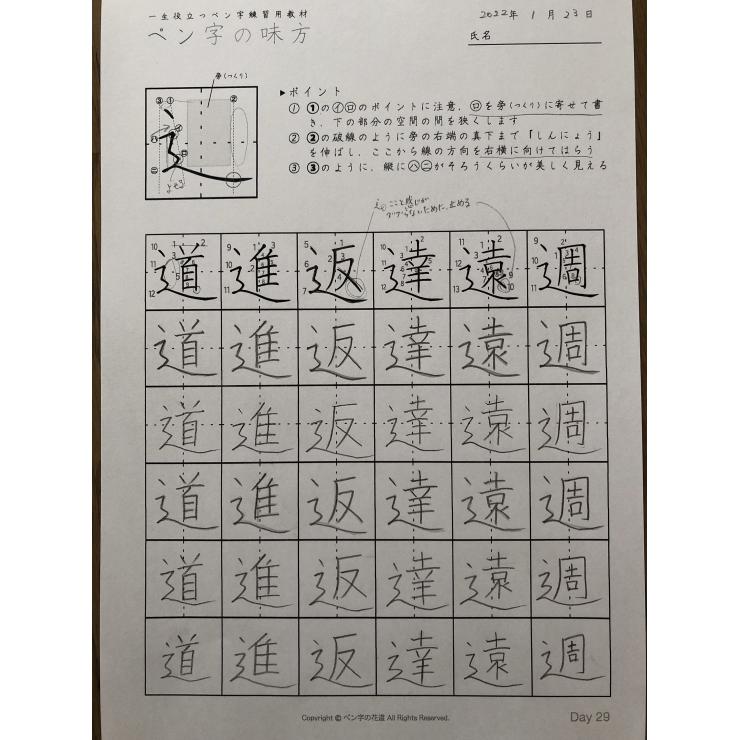 一生役立つペン字練習用教材
ペン字の味方
2022年 1月 23日
氏名
旁(つくり)
③ ① ②
イ
ハ
ロ
ニ
よせる
▶ポイント
① ❶のイロのポイントに注意。ロを旁(つくり)に寄せて書
き、下の部分の空間の間を狭くします
② ❷の破線のように旁の右端の真下まで「しんにょう」
を伸ばし、ここから線の方向を右横に向けてはらう
③ ❸のように、縦にハニがそろうくらいが美しく見える
ここと感じが
ため、止める
道 進 返 達 遠 週
道 進 返 達 遠 週
道 進 返 達 遠 週
道 進 返 達 遠 週
道 進 返 達 遠 週
道 進 返 達 遠 週
Copyright © ペン字の花道 All Rights Reserved.
Day 29